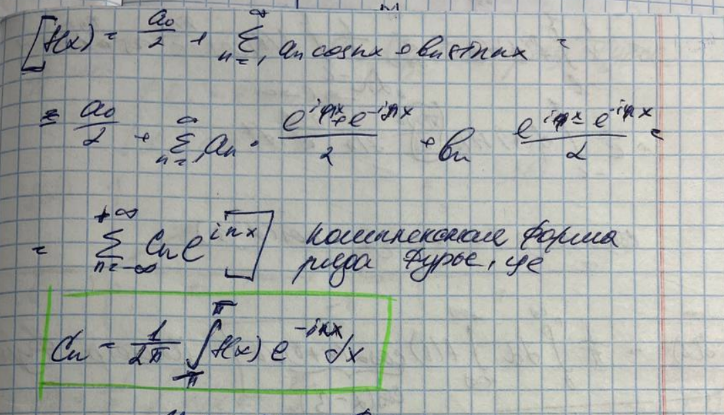 [f(x) = a₀/2 + ∑ₙ₌₁^∞ aₙ cos nx + bₙ sin nx =
= a₀/2 + ∑ₙ₌₁^∞ aₙ · (e^{inx} + e^{-inx})/2 + bₙ (e^{inx} e^{-inx})/2 =
= ∑_{n=-∞}^{+∞} Cₙ e^{inx}] комплексная форма
ряда Фурье, где
Cₙ = 1/2π ∫_{-π}^{π} f(x) e^{-inx} dx